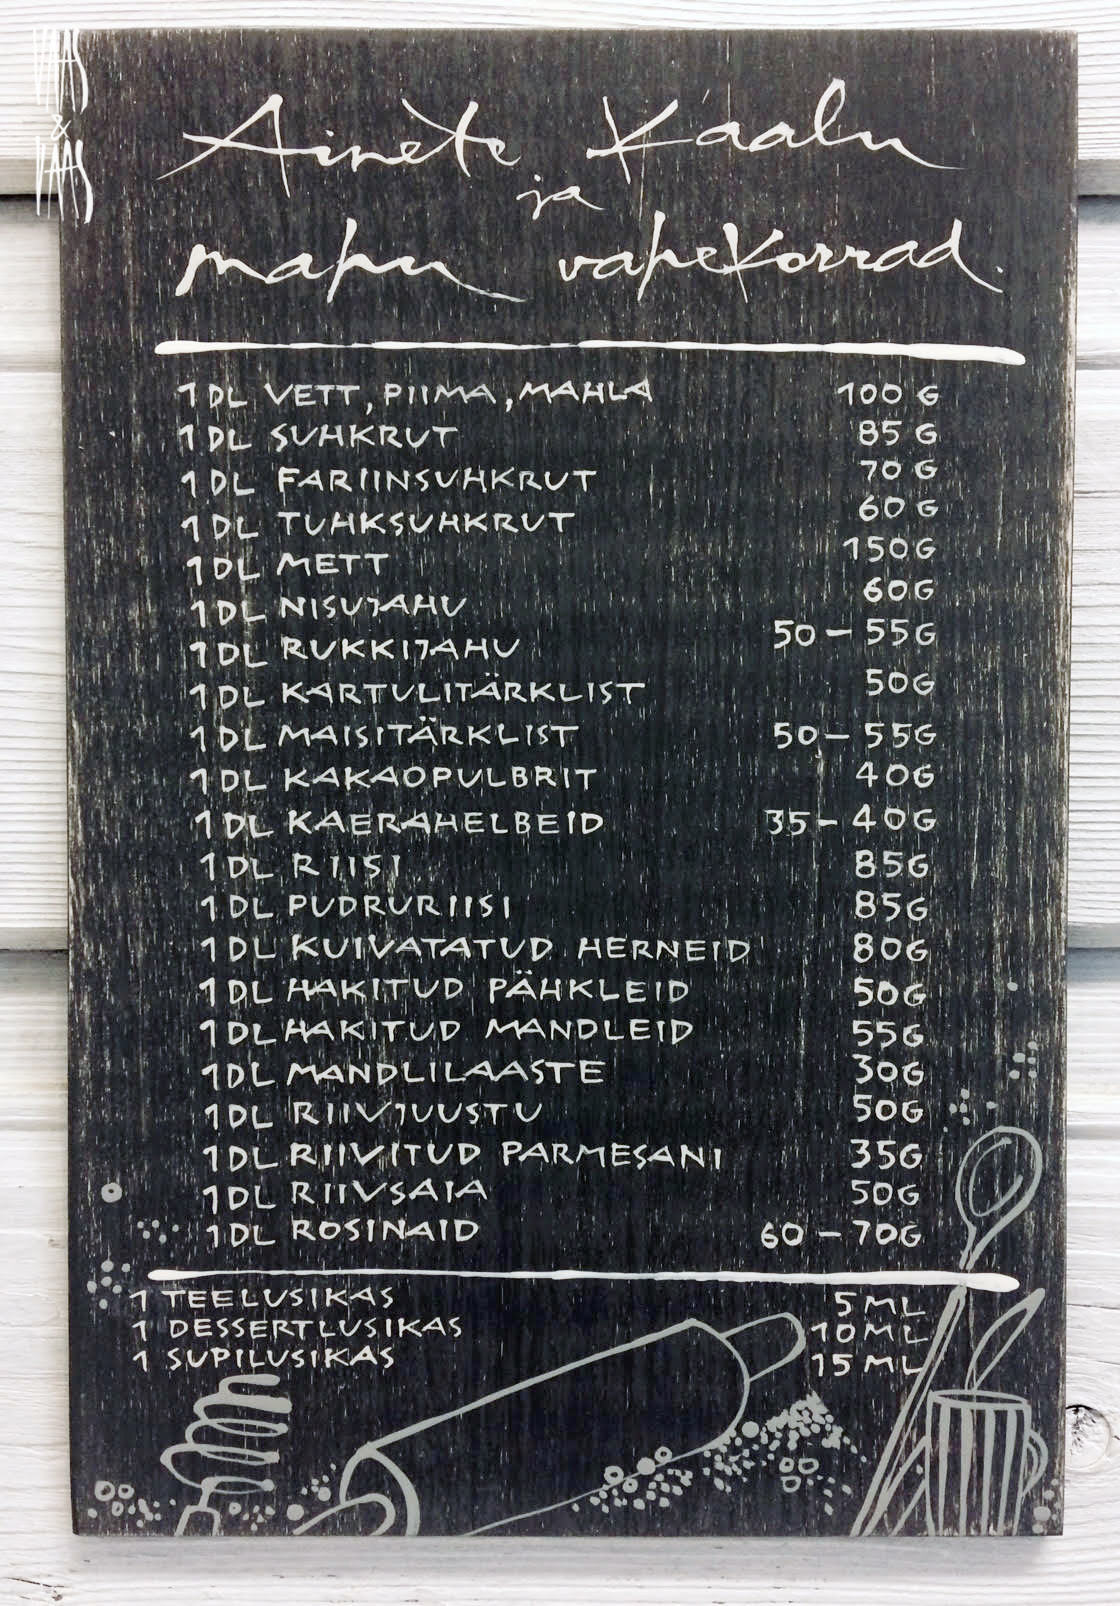 VAAS
&
VAAS
Ainete Kaalu
ja
mahu vahekorrad.
1 DL VETT, PIIMA, MAHLA 100 G
1 DL SUHKRUT 85 G
1 DL FARIINSUHKRUT 70 G
1 DL TUHKSUHKRUT 60 G
1 DL METT 150 G
1 DL NISUJAHU 60 G
1 DL RUKKIJAHU 50 - 55 G
1 DL KARTULITÄRKLIST 50 G
1 DL MAISITÄRKLIST 50 - 55 G
1 DL KAKAOPULBRIT 40 G
1 DL KAERAHELBEID 35 - 40 G
1 DL RIISI 85 G
1 DL PUDRURIISI 85 G
1 DL KUIVATATUD HERNEID 80 G
1 DL HAKITUD PÄHKLEID 50 G
1 DL HAKITUD MANDLEID 55 G
1 DL MANDLILAASTE 30 G
1 DL RIIVJUUSTU 50 G
1 DL RIIVITUD PARMESANI 35 G
1 DL RIIVSAIA 50 G
1 DL ROSINAID 60 - 70 G
1 TEELUSIKAS 5 ML
1 DESSERTLUSIKAS 10 ML
1 SUPILUSIKAS 15 ML